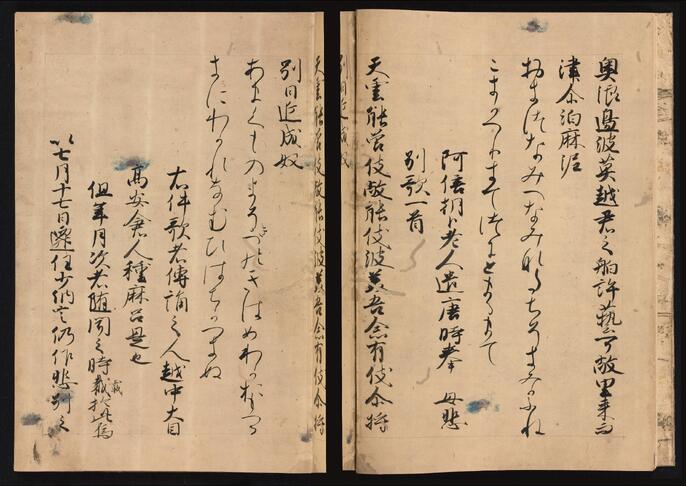 奥浪邉波莫越君之舶許藝可敝里来而
津尓泊麻泥
おきつなみへなみなたちそきみかふね
こきかへりきてつにとまるまて
阿倍朝臣老人遣唐時奉母悲
別歌一首
天雲能曽伎敝能伎波美吾念有伎尓将
別日近成奴
あまくものそきへのきはみわかおもへる
きみにわかれなむひはちかつきぬ
右件歌者傳誦之人越中大目
高安倉人種麻呂是也
但年月次者随聞之時載於此焉
以七月十七日遷任少納言仍作悲別之